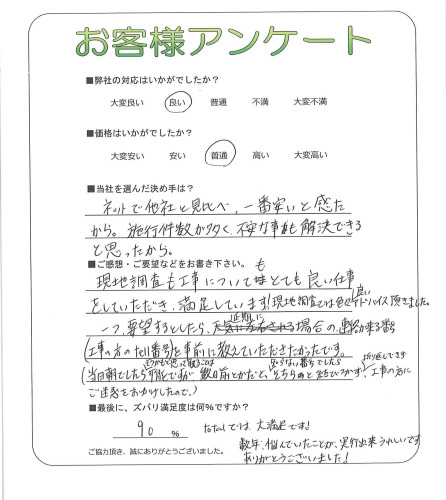 お客様アンケート
■弊社の対応はいかがでしたか?
大変良い 良い 普通 不満 大変不満
■価格はいかがでしたか?
大変安い 安い 普通 高い 大変高い
■当社を選んだ決め手は?
ネットで他社と見比べ、一番安いと感た
から。施行件数が多く、不安な事も解決できる
と思ったから。
■ご感想・ご要望などをお書き下さい。
現地調査も工事についてもとても良い仕事
をしていただき、満足しています!現地調査では良いアドバイス頂きました。
一つ、要望するとしたら、延期に される場合の連絡が来る番
(工事の方のtel番号)を事前に教えていただきたかったです。
(当日朝でしたら 可能ですが、数日前とかだと、知らない番号でしたら 折り返しできず、工事の方に
ご迷惑をおかけしたので。)
■最後に、ズバリ満足度は何%ですか?
90 % わたしでは、大満足です!
数年、悩んでいたことが、実行出来うれしいです
ありがとうございました!
ご協力頂き、誠にありがとうございました。